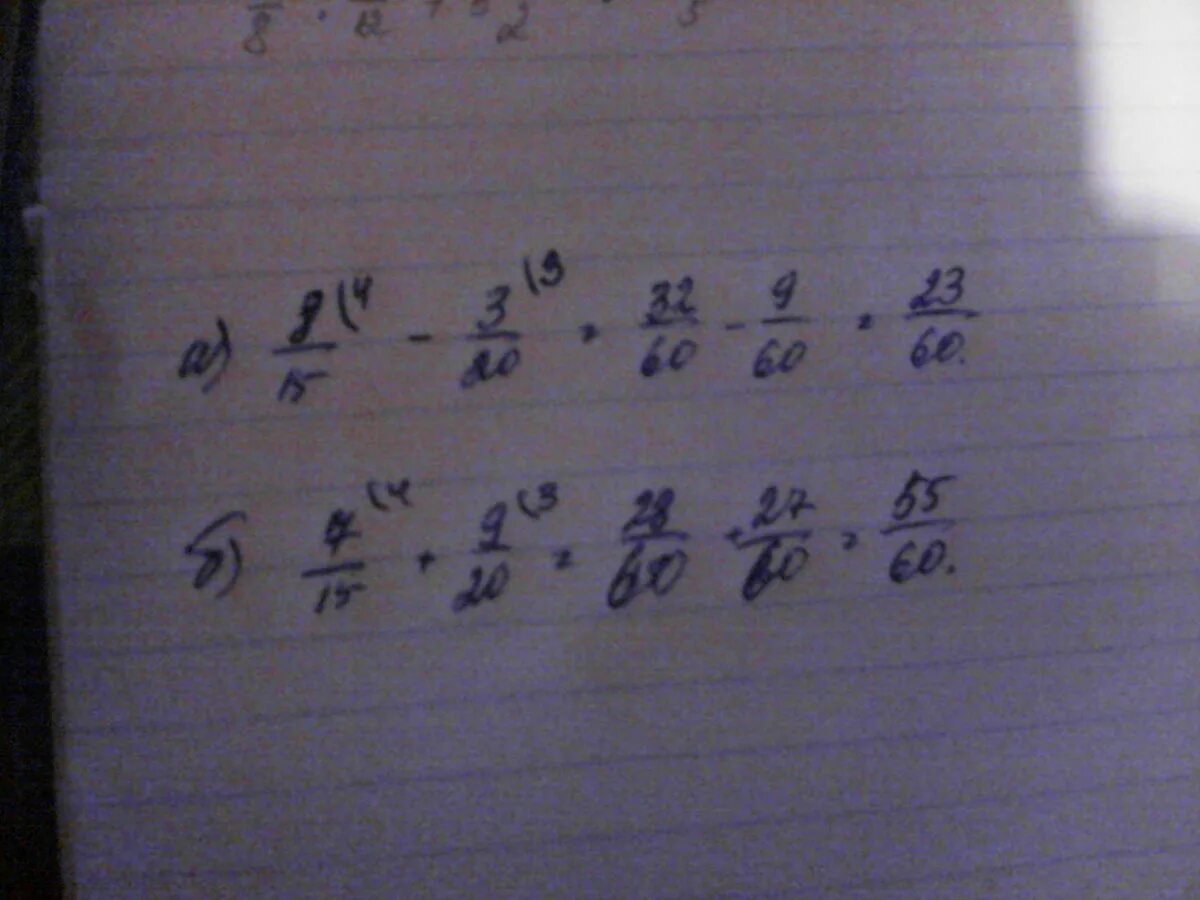 8 12 2 5
а) 8/15 (4 - 3/20 (3 = 32/60 - 9/60 = 23/60.
б) 7/15 (4 + 9/20 (3 = 28/60 + 27/60 = 55/60.